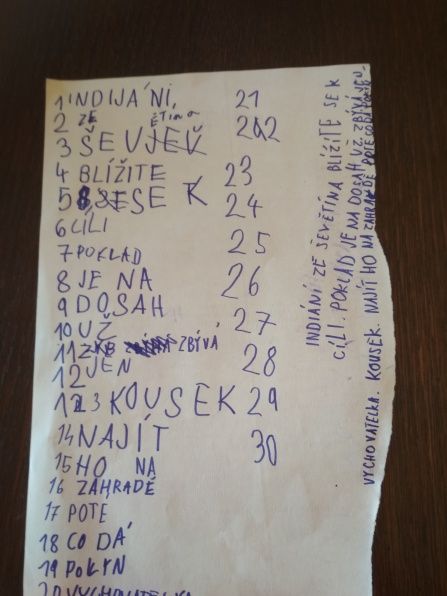 1 INDIJÁNI,
2 ZE
3 ŠEVJEV ĚTINA
4 BLÍŽITE
5 SE K
6 CÍLI
7 POKLAD
8 JE NA
9 DOSAH
10 UŽ
11 ZBÝVÁ
12 JEN
13 KOUSEK
14 NAJÍT
15 HO NA
16 ZAHRADĚ
17 POTE
18 CO DÁ
19 POKYN
20 VYCHOVATELKA
21
22
23
24
25
26
27
28
29
30
INDIÁNI ZE ŠEVĚTÍNA BLÍŽÍTE SE K
CÍLI. POKLAD JE NA DOSAH UŽ ZBÝVÁ JEN
KOUSEK. NAJÍT HO NA ZAHRADĚ POTÉ CO DÁ POKYN
VYCHOVATELKA.